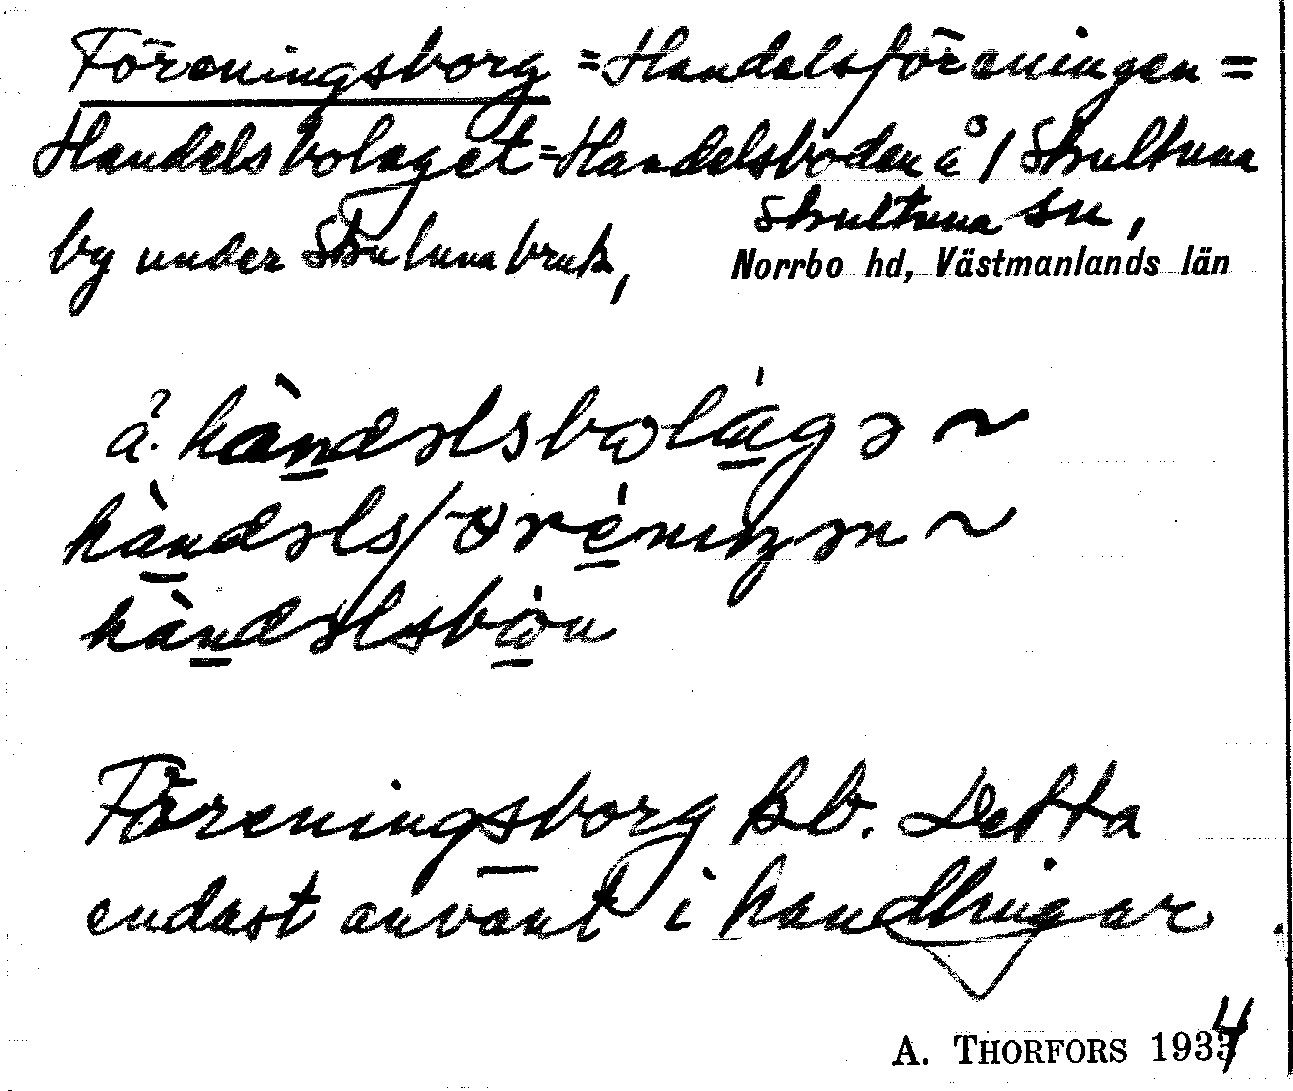 Föreningsborg = Handelsföreningen =
Handelsbolaget = Handelsboden å / Skultuna
by under Skultuna bruk, Skultuna sn,
Norrbo hd, Västmanlands län
å. hàndəlsbωlágə ~
hàndəlsföréniŋən ~
hàndəlsbωn
Föreningsborg kb. Detta
endast använt i handlingar.
A. THORFORS 1934